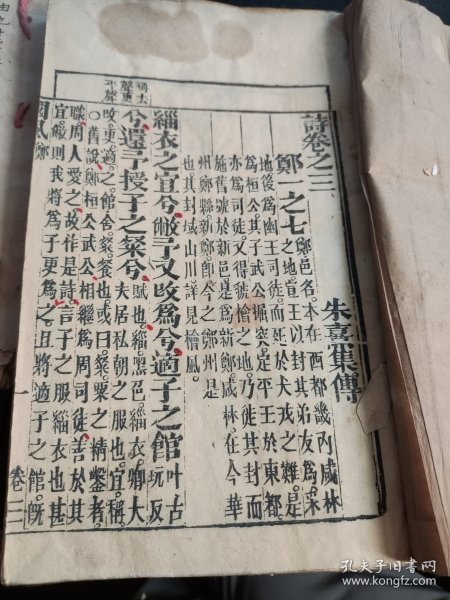 詩卷之三
朱熹集傳
鄭一之七
鄭邑名本在西都畿內咸林
之地宣王以封其弟友為采
地後為幽王司徒而死於犬戎之難是
為桓公其子武公掘突定平王於東都
亦為司徒又得虢檜之地乃徙其封而
施舊號於新邑是為新鄭咸林在今華
州鄭縣新鄭即今之鄭州是
也其封域山川詳見檜風
緇衣之宜兮敝予又改為兮適子之館
叶古
玩反
兮還予授子之粲兮
賦也緇黑色緇衣卿大
夫居私朝之服也宜稱
改更適之館舍粲餐也或曰粲粟之精鑿者
○舊說鄭桓公武公相繼為周司徒善於其
職周人愛之故作是詩言子之服緇衣也甚
宜敝則我將為子更為之且將適子之館既
卷三
孔夫子旧书网
www.kongfz.com